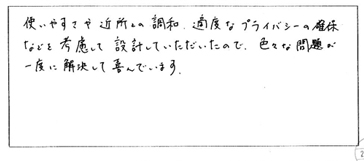 使いやすさや近所との調和、適度なプライバシーの確保
などを考慮して設計していただいたので、色々な問題が
一度に解決して喜んでいます。
2